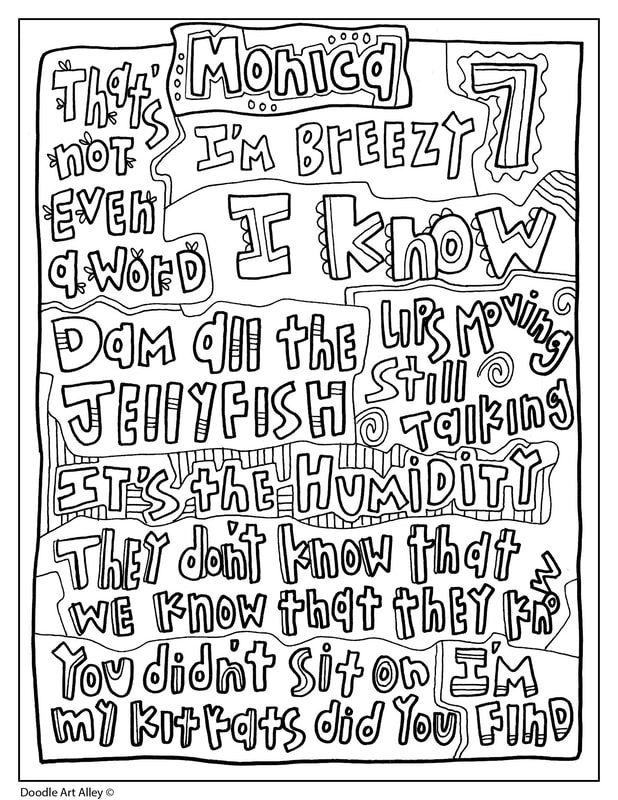 Monica
7
That's
not
Even
a word
I'm Breezy
I Know
Dam all the
Jellyfish
Lips Moving
Still
Talking
It's the Humidity
They don't know that
we know that they know
You didn't sit on
my kit kats did You
I'm
Find
Doodle Art Alley ©